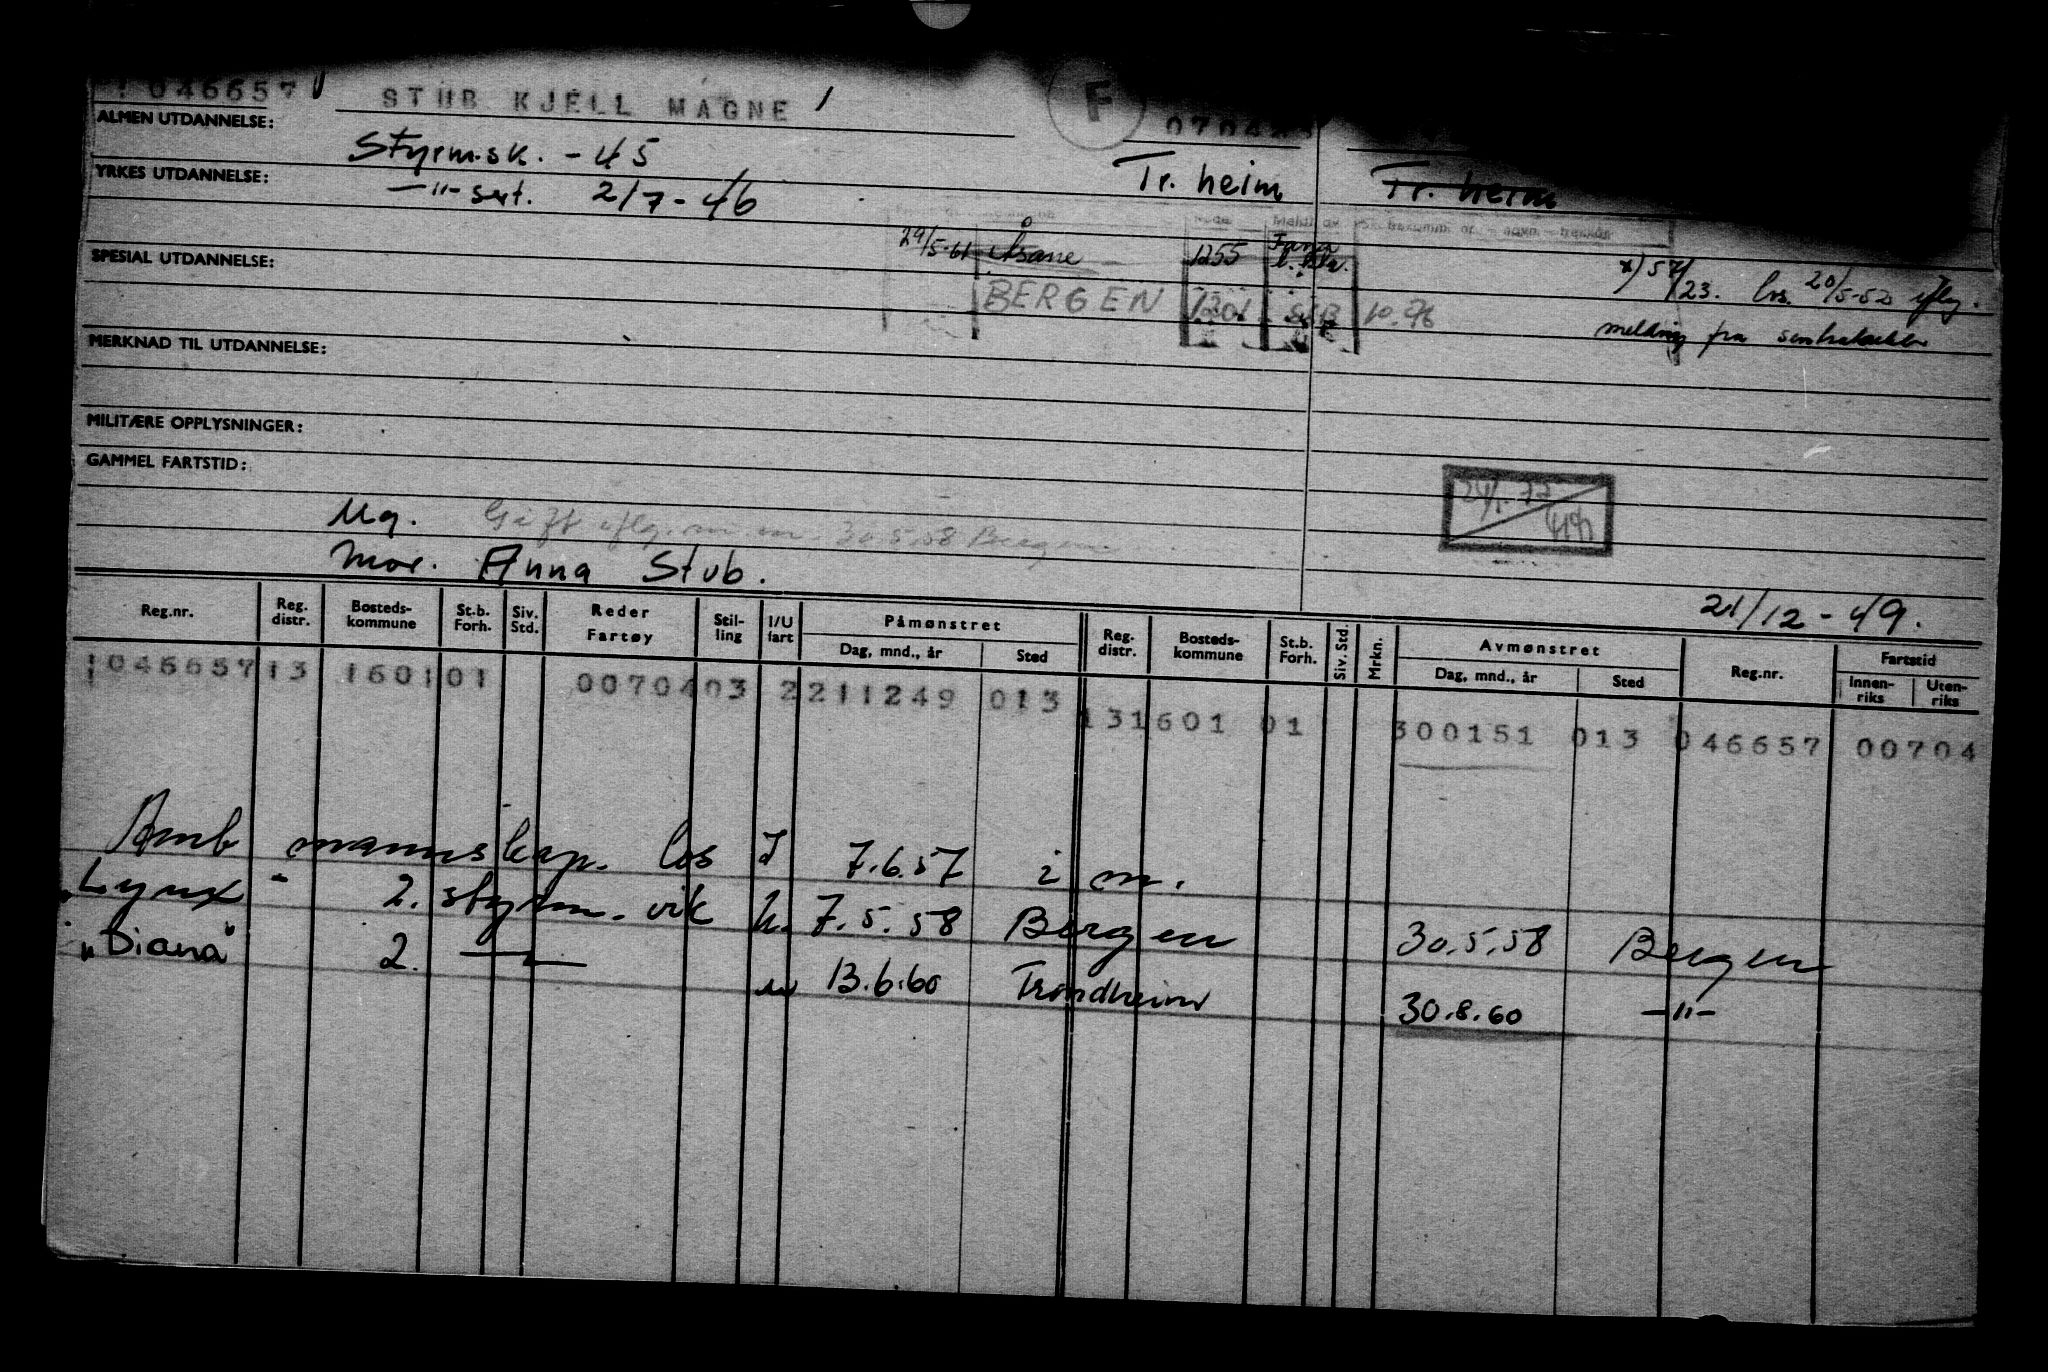 1046657 STUB KJELL MAGNE F
ALMEN UTDANNELSE: Styrm.sk. - 45 Tr. heim Tr. heim
YRKES UTDANNELSE: —"— sert. 2/7 - 46
29/5-61 Åsane 1255
SPESIAL UTDANNELSE: BERGEN 1301
x) 57/23. los. 20/5-52 iflg.
melding fra
MERKNAD TIL UTDANNELSE:
MILITÆRE OPPLYSNINGER:
GAMMEL FARTSTID:
Ug. Gift iflg. m.m. 30.5.58 Bergen
Mor. Anna Stub.
21/12 - 49.
Reg.nr. Reg. distr. Bosteds-kommune St.b. Forh. Siv. Std. Reder Fartøy Stil-ling I/U fart Påmønstret Dag, mnd., år Sted Reg. distr. Bosteds-kommune St.b. Forh. Siv. Std. Mrkn. Avmønstret Dag, mnd., år Sted Reg.nr. Fartstid Innen-riks Uten-riks
1046657 13 1601 01 00704 03 2 211249 013 13 1601 01 300151 013 046657 00704
Amb mannskap. los I 7.6.57 i m.
"Lynx" 2. styrm. vik h. 7.5.58 Bergen 30.5.58 Bergen
"Diana" 2. —"— 13.6.60 Trondheim 30.8.60 —"—